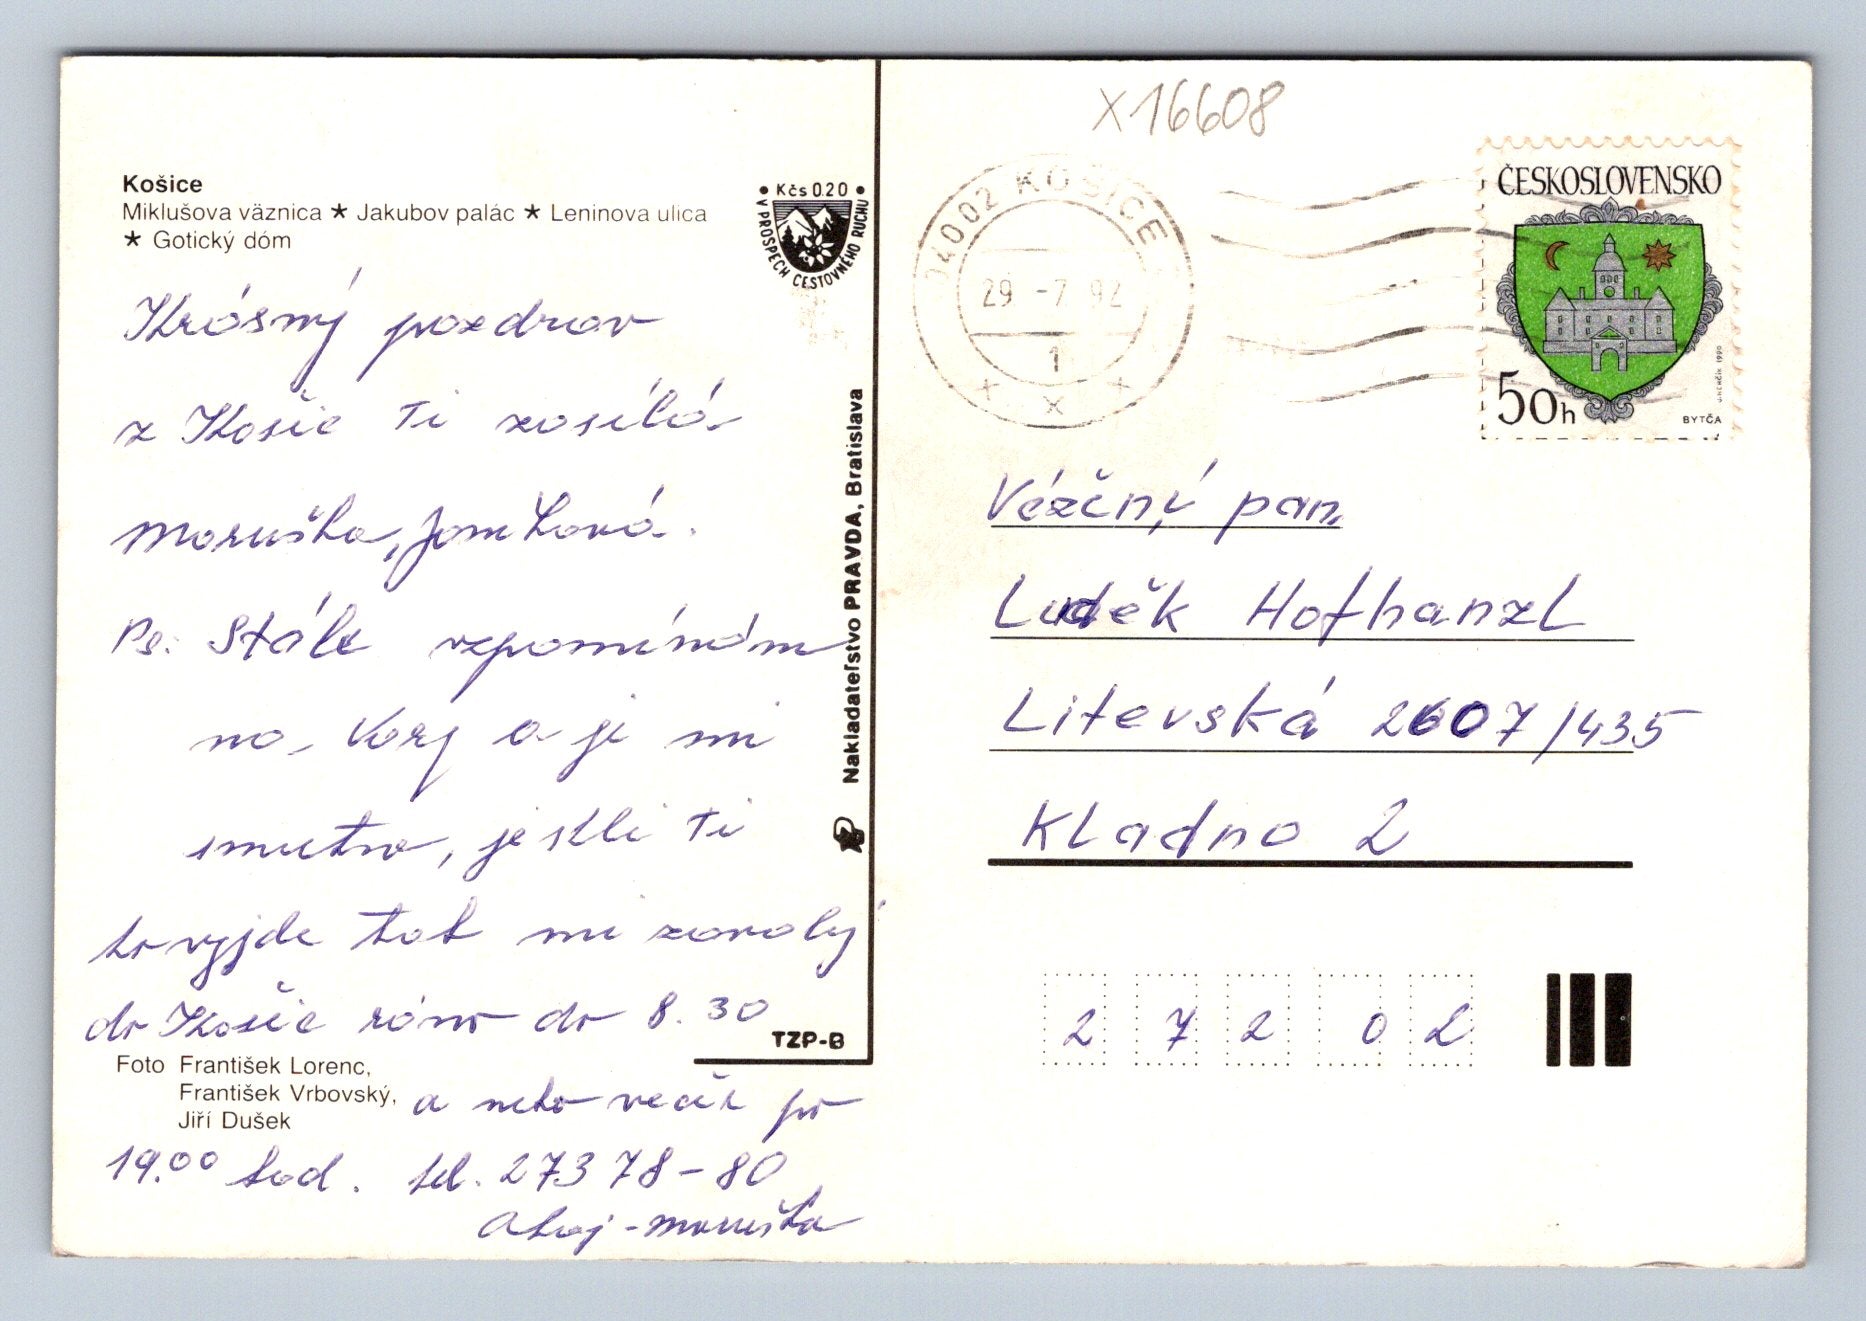 Košice
Miklušova väznica ★ Jakubov palác ★ Leninova ulica
★ Gotický dóm
• Kčs 0.20 •
V PROSPECH CESTOVNÉHO RUCHU
Krásný pozdrav
z Košic Ti zasílá
Maruška, Jamková.
Ps: Stále vzpomínám
na Vary a je mi
smutno, jestli Ti
to vyjde tak mi zavolej
do Košic ráno do 8.30
TZP-B
Foto František Lorenc,
František Vrbovský,
Jiří Dušek
a nebo večer po
19.00 hod. tel. 27378-80
Ahoj - Maruška
Nakladateľstvo PRAVDA, Bratislava
X16608
04002 KOŠICE
29 -7 92
1
ČESKOSLOVENSKO
50h
BYTČA
J. HERČÍK 1990
Vézčný pan
Luděk Hofhanzl
Litevská 2607/435
Kladno 2
272 02